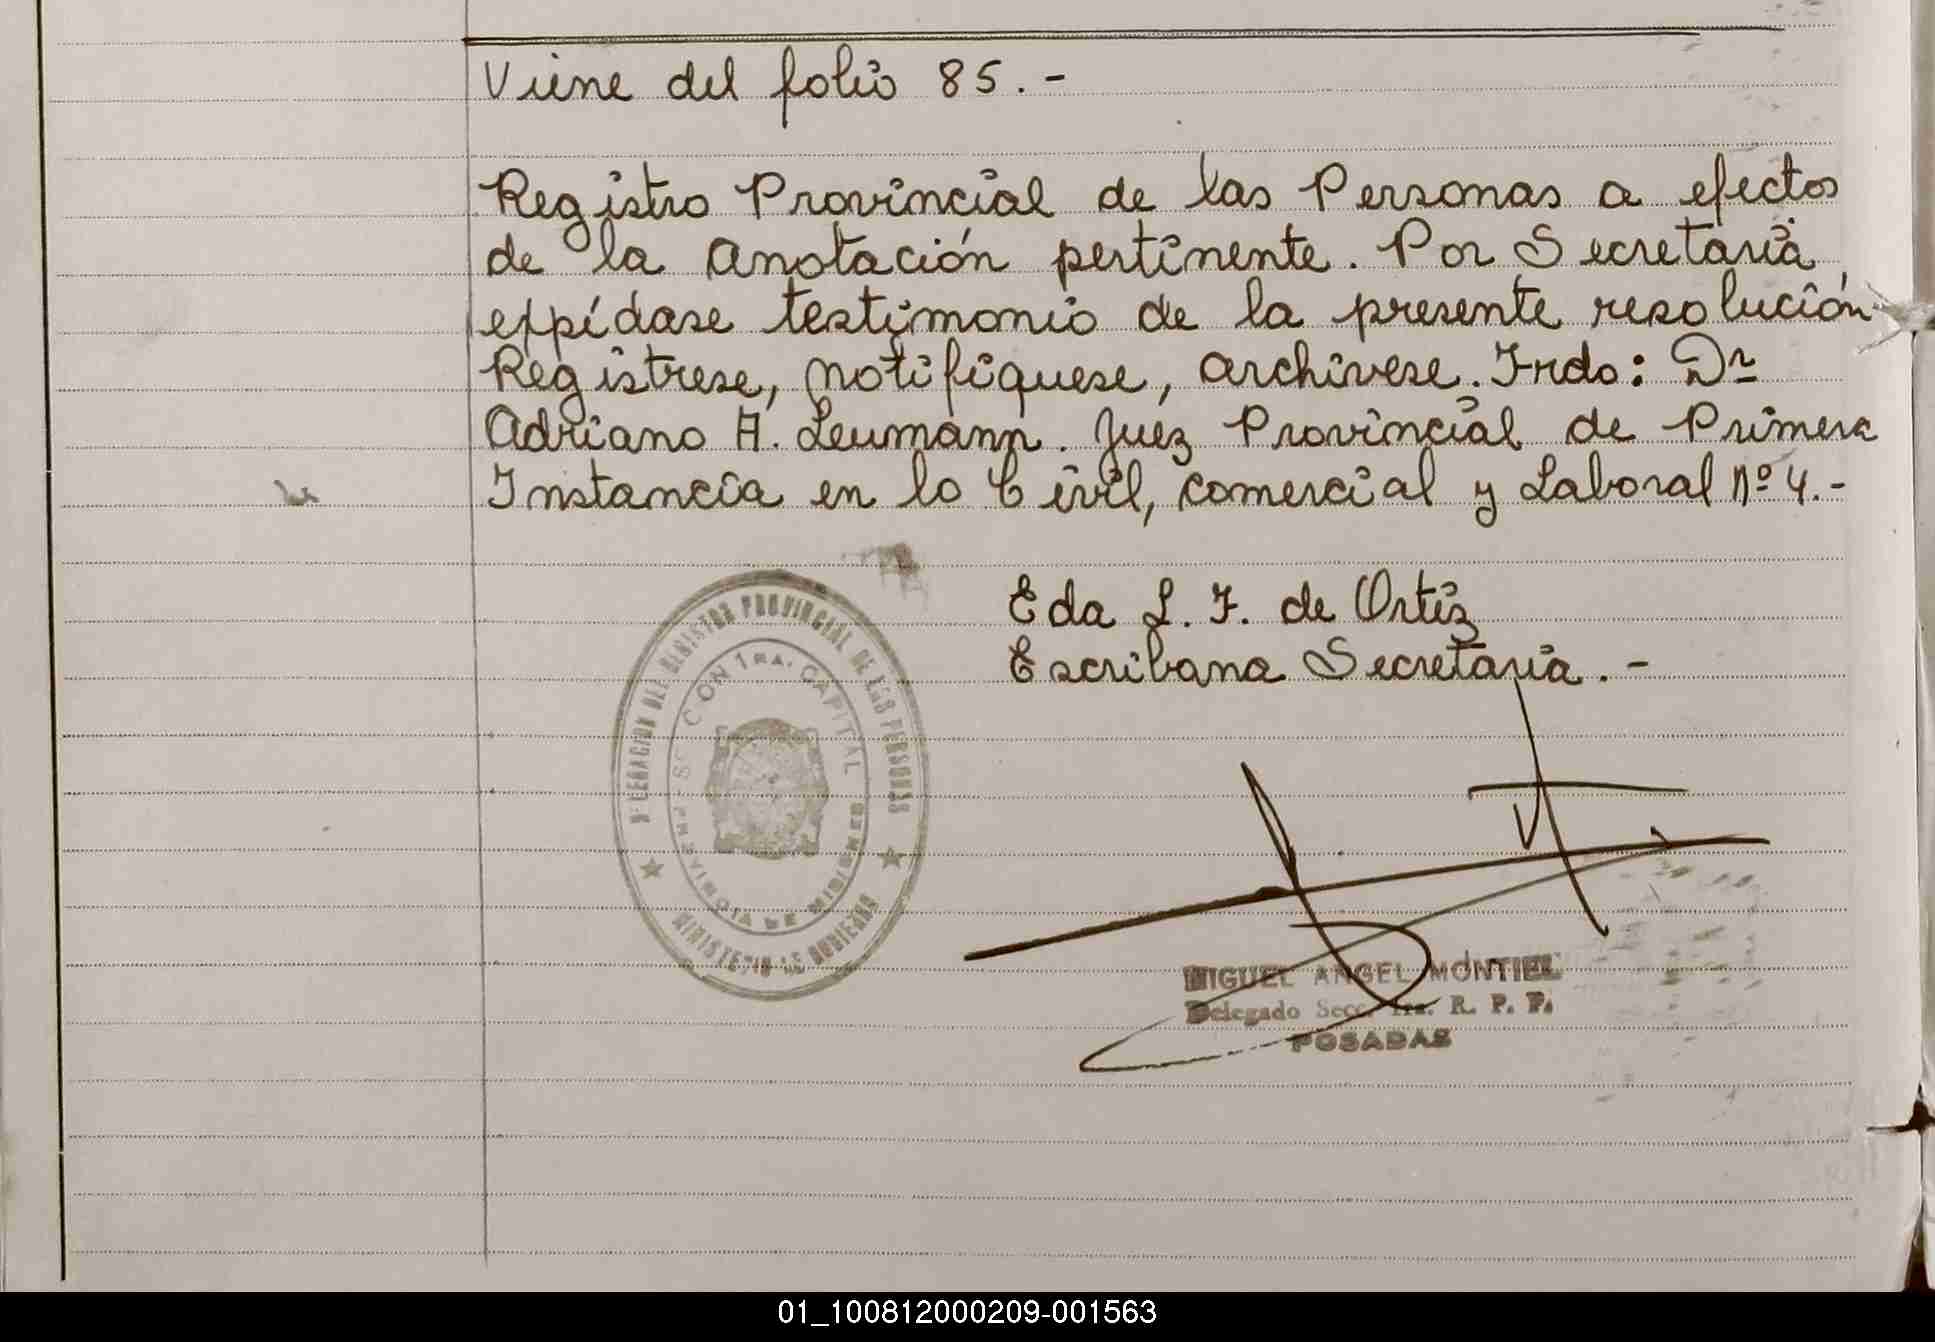 Viene del folio 85.-
Registro Provincial de las Personas a efectos
de la anotación pertinente. Por Secretaría
expídase testimonio de la presente resolución
Regístrese, notifíquese, archívese. Frdo: Dr
Adriano A. Leumann. Juez Provincial de Primera
Instancia en lo Civil, comercial y Laboral Nº 4.-
Eda L. F. de Ortiz
Escribana Secretaria.-
DELEGACION DEL REGISTRO PROVINCIAL DE LAS PERSONAS
SECCION 1RA. CAPITAL
PROVINCIA DE MISIONES
MINISTERIO DE GOBIERNO
MIGUEL ANGEL MONTIEL
Delegado Secc. 1ra. R. P. P.
POSADAS
01_100812000209-001563